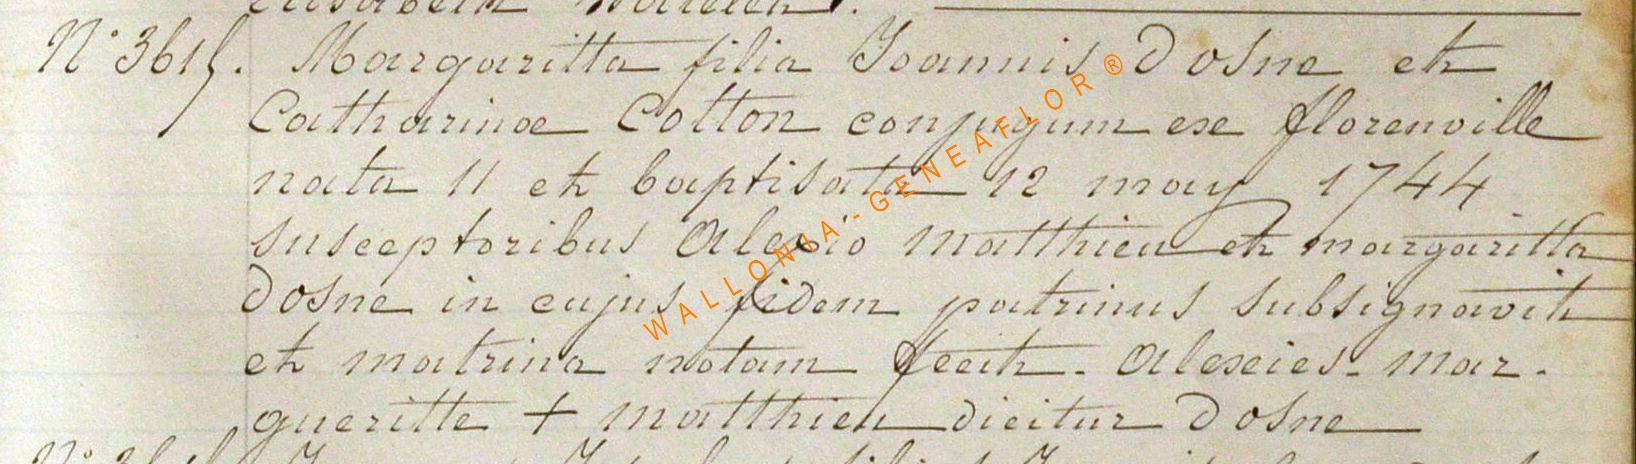 N° 3615. Margaritta filia Joannis Dosne et
Catharinae Cotton conjugum ex florenville
nata 11 et baptisata 12 may 1744
susceptoribus Alexio Matthieu et margaritta
Dosne in cujus fidem patrinus subsignavit
et matrina notam fecit. Alexies. Mar.
gueritte + Matthieu dicitur Dosne
WALLONIA - GENEAFLOR ®